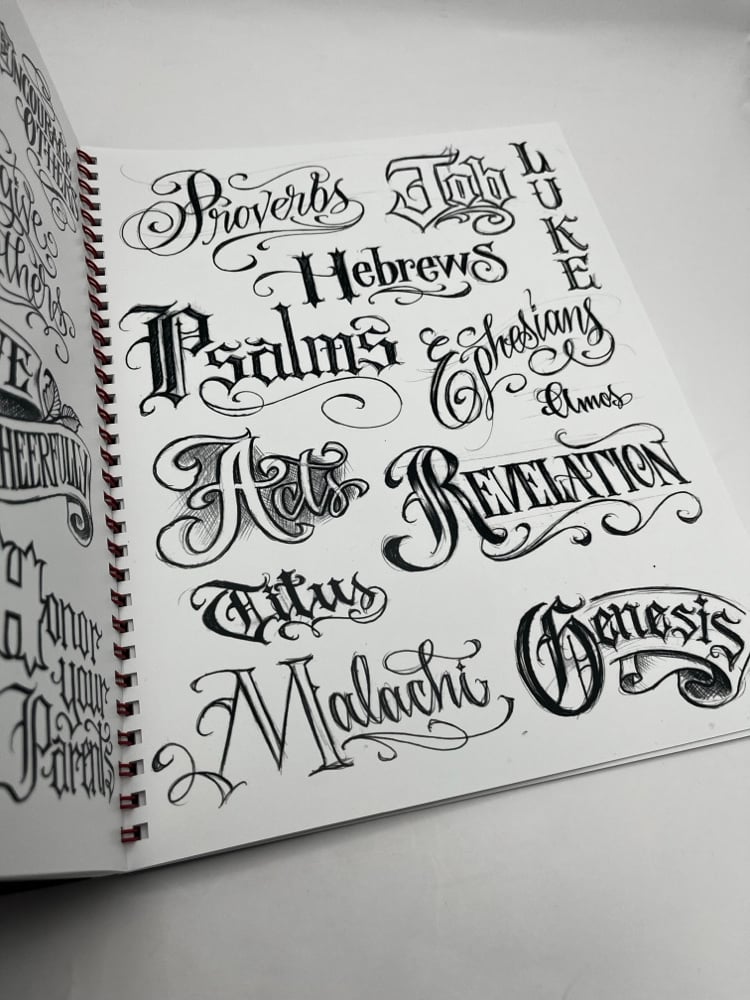 ENCOURAGE
OTHERS
give
thers
VE
HEERFULLY
Honor
your
Parents
Proverbs
Job
LUKE
Hebrews
Psalms
Ephesians
Amos
Acts
REVELATION
Titus
Genesis
Malachi